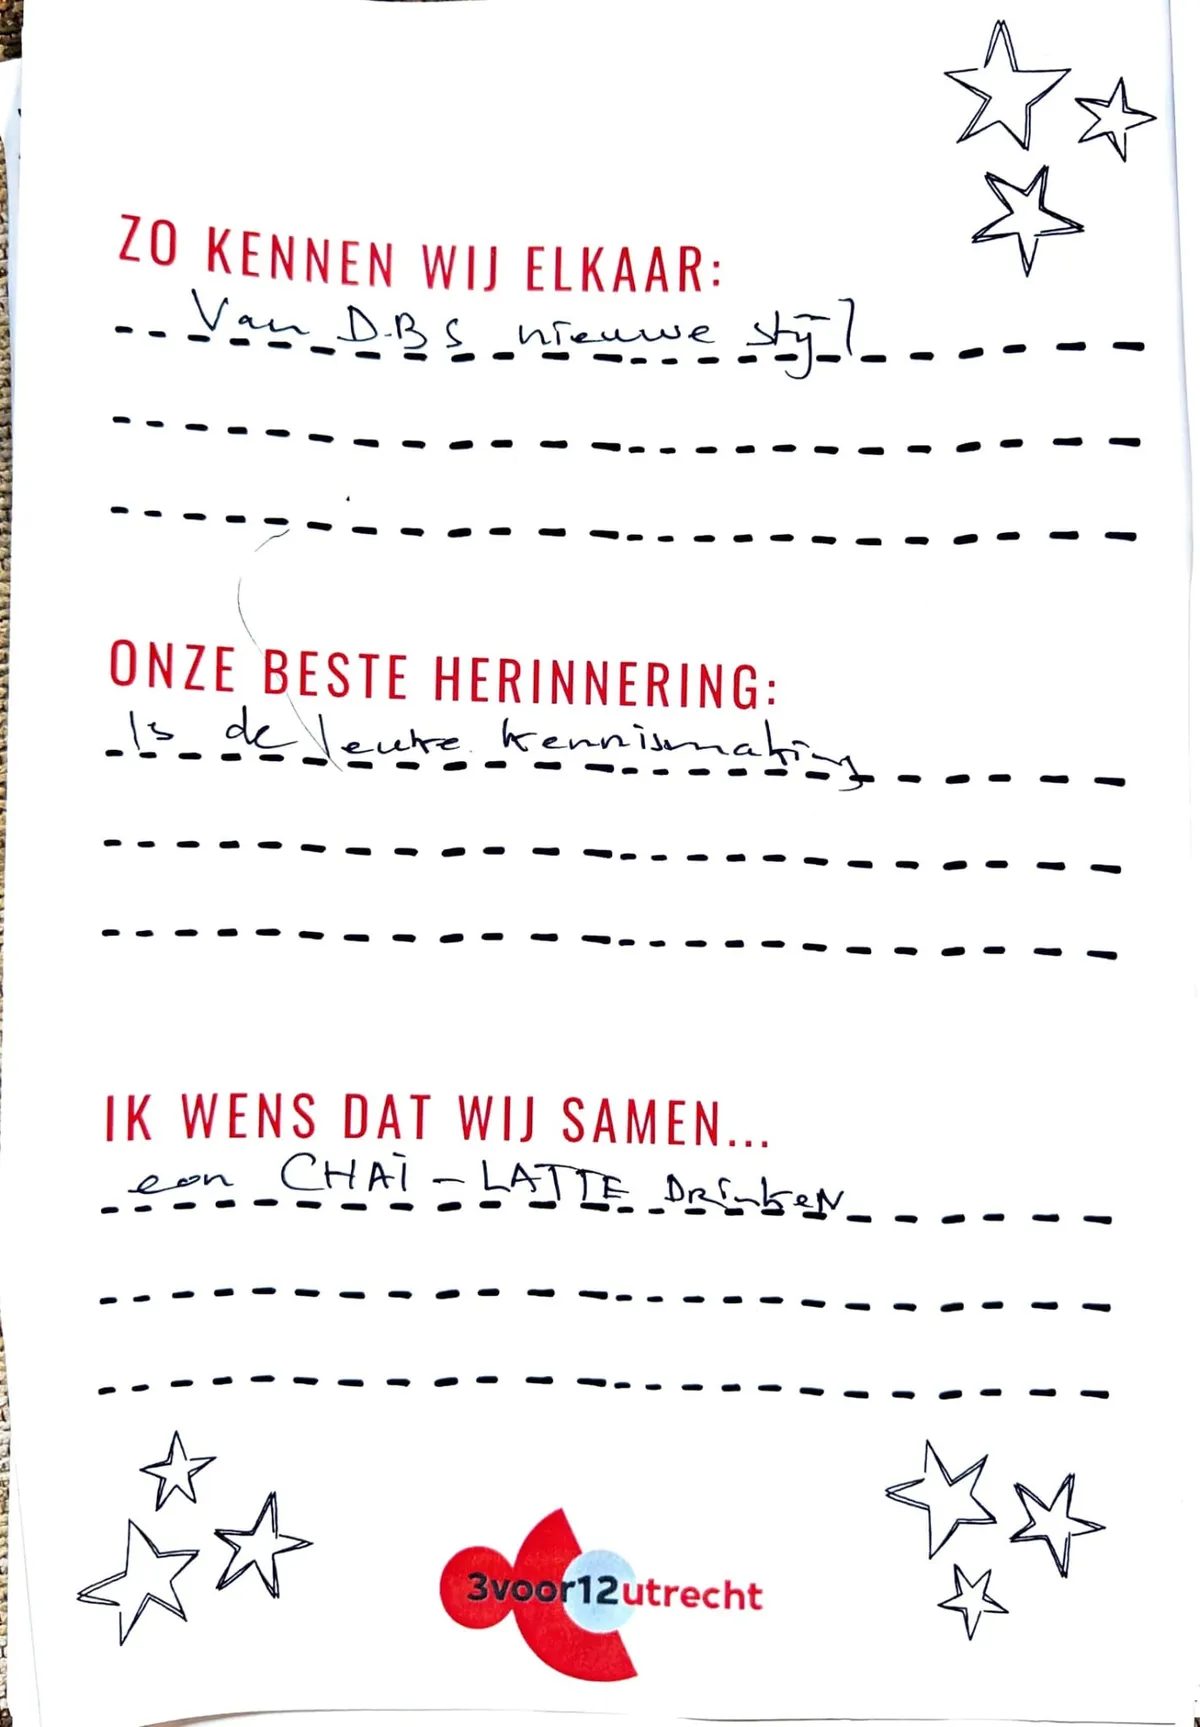 ZO KENNEN WIJ ELKAAR:
Van D.B S nieuwe stijl
ONZE BESTE HERINNERING:
Is de leuke kennismaking
IK WENS DAT WIJ SAMEN...
een CHAI - LATTE DRinkeN
3voor12utrecht